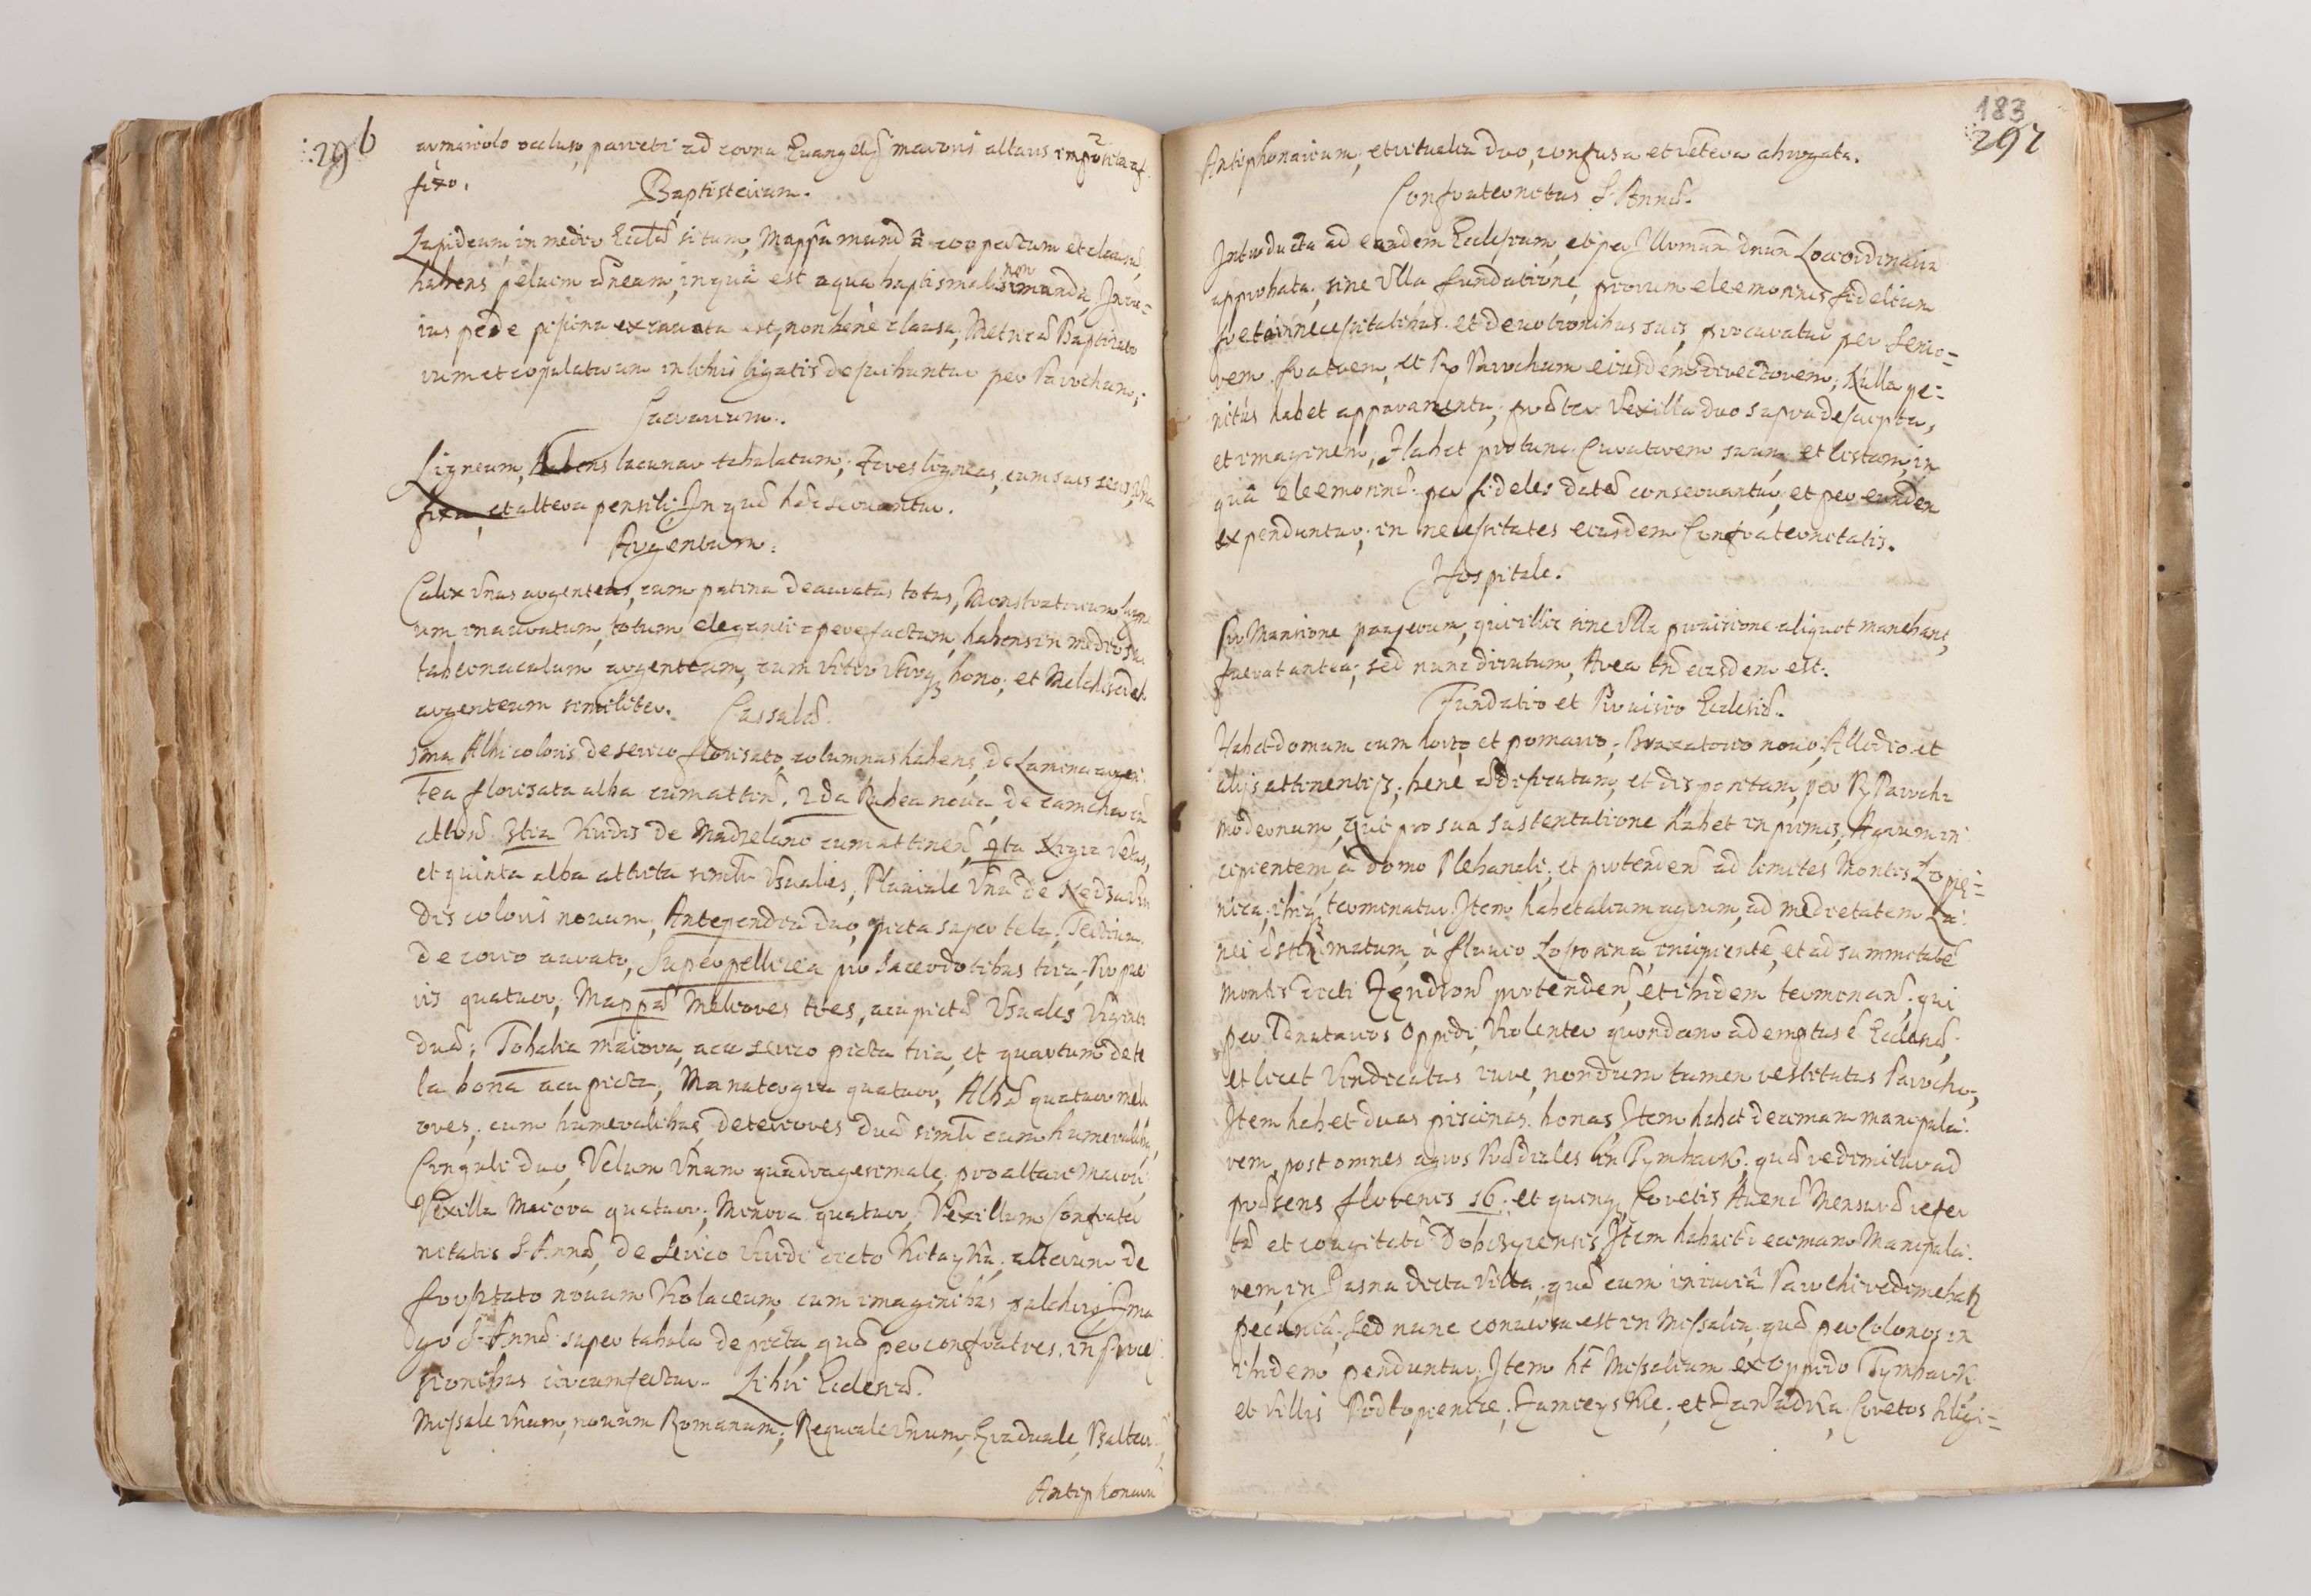 296
armariolo occluso, parieti ad cornu Evangelÿ maioris altaris imposito af
fixo.
Baptisterium.
Lapideum, in medio Eccłæ situm, Mappâ mundâ coopertum et clausū,
habens peluim æneam, in quâ est aqua baptismalis non munda, Inte-
ius pede piscina excauata est, non benè clausa, Metricæ Baptizato
rum et copulatorum in libris ligatis describuntur per Parochum;
Sacrarium.
Ligneum, habens lacunar tabulatum; Fores ligneas, cum suis seris,
fixa, et altera pensili; In quo hæc seruantur.
Argentum.
Calix vnus argenteus, cum patina deauratus totus, Monstratorium
um inauratum, totum, eleganti opere factum, habens in medio
tabernaculum argenteum, cum vitro vtroqꝫ bono; et Melchisedek
argenteum similiter. Cassulæ.
1ma Albi coloris de serico florisato, columnas habens, de Lamina argen
tea florisata alba cum attinē. 2da Rubea noua, de tamcha cū
attinē. 3tia Viridis de Madzelano cum attinen, 4ta Nigra vetus,
et quinta alba attrita simłr vsuales, Pluviale vnū de
dis coloris nouum, Antependia duo, picta super tela, Tertium
de corio aurato, Superpellicea pro Sacerdotibus tria, Pro pue
ris quatuor, Mappæ Meliores tres, acu pictæ vsuales viginti
duæ; Tobalia maiora, acu serico picta tria, et quartum de te
la bona acu picta, Manutergia quatuor, Albæ quatuor meli
ores, cum humeralibus, deteriores duæ simłr cum humeralibꝰ,
Cinguli duo, Velum vnum quadragesimale, pro altari Maiori
Vexilla Maiora quatuor, Minora quatuor, Vexillum Confrater
nitatis S. Annæ, de serico viridi dicto Kitayka, alterum de
forsztato nouum violaceum, cum imaginibus pulchris, Ima
go S. Annæ super tabula depicta, quæ per confratres, in proces
sionibus circumfertur. Libri Ecclesiæ.
Missale vnum, nouum Romanum, Requiale vnum, Graduale, Psalteriū,
Antiphonariū
183
297
Antiphonarium, et ritualia duo, confusa et vetera abrogata.
Confraternitas S. Annæ.
Introducta ad eandem Ecclesiam, et per Illvmum Dnūm Locordinariū
approbata, sine vlla fundatione, piorum eleemosinis fidelium
freta in necessitatibus et deuotionibus suis, procuratur per Senio-
rem fratrem, et Pro Parochum eiusdem directorem; Nulla pe-
nitùs habet apparamenta, præter Vexilla duo supradescripta,
et imaginem, Habet pro tunc Curatorem suum, et cistam, in
quâ eleemosinæ per fideles datæ conseruantur, et per eundem
expenduntur, in necessitates eiusdem Confraternitatis.
Hospitale.
Pro Mansione pauperum, qui illic sine vlla prouisione aliquot manebant,
fuerat antea; sed nunc dirutum, Area tñ eiusdem est.
Fundatio et Prouisio Ecclesiæ.
Habet domum cum horto, et pomario, Braxatorio nouo, Allodio et
alÿs attinentÿs, benè ædificatam, et dispositam, per R. Parochū
modernum, qui pro sua sustentatione habet in primis, Agrum in
cipientem, à domo Plebanali, et protendenē ad limites Montis Łopie-
nica, ibiqꝫ terminatur. Item habet alium agrum, ad medietatem La-
nei estimatum, à fluuio Łososina, incipientē, et ad summitatē
montis dicti Zęndron protendenē, et ibidem terminanē, qui
per Tenutarios Oppidi, violenter quondam ademptus ē Ecclesiæ,
et licet vindicatus iure, nondum tamen restitutus Parocho,
Item habet duas piscinas bonas, Item habet decimam manipula-
rem, post omnes agros Prædiales in Tymbark, quæ redimitur ad
præsens florenis 16, et quinqꝫ Coretis Auenæ Mensuræ refer
tæ et coagitatæ Dobczycensis, Item habuit decimam Manipula-
rem, in Jasna dicta Villa, quæ cum iniuriâ Parochi redimebatꝛ
pecuniâ, Sed nunc conuersa est in Missalia, quæ per Colonos in
ibidem penduntur, Item hēt Missalium ex Oppido Tymbark
et Villis Podłopienie, Zamieyskie, et Zawadka, Coretos Siligi-